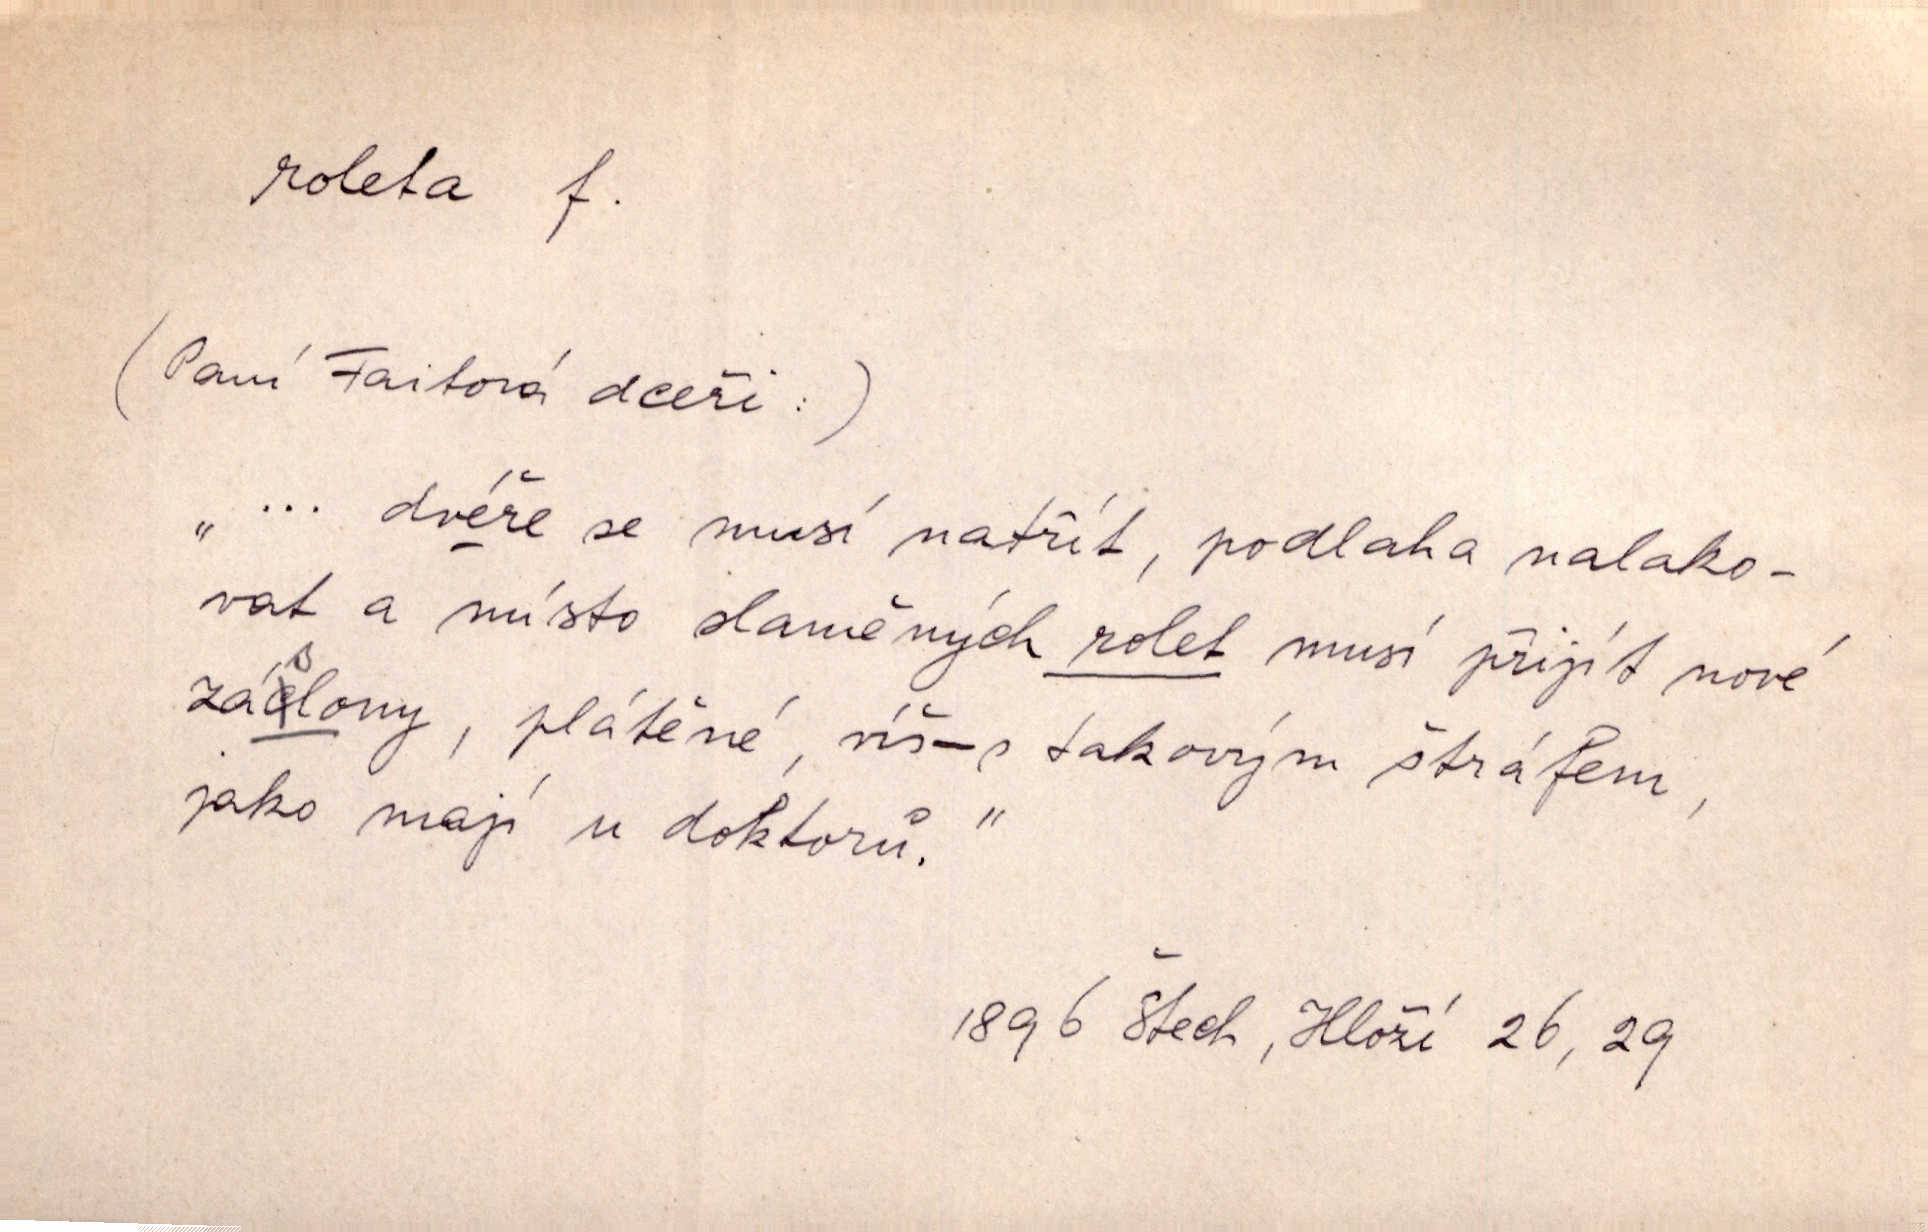 roleta f.
(Paní Faitová dceři:)
„... dvéře se musí natřít, podlaha nalako-
vat a místo slaměných rolet musí přijít nové
záslony, plátěné, víš – s takovým štráfem,
jako mají u doktorů."
1896 Štech, Hloží 26, 29